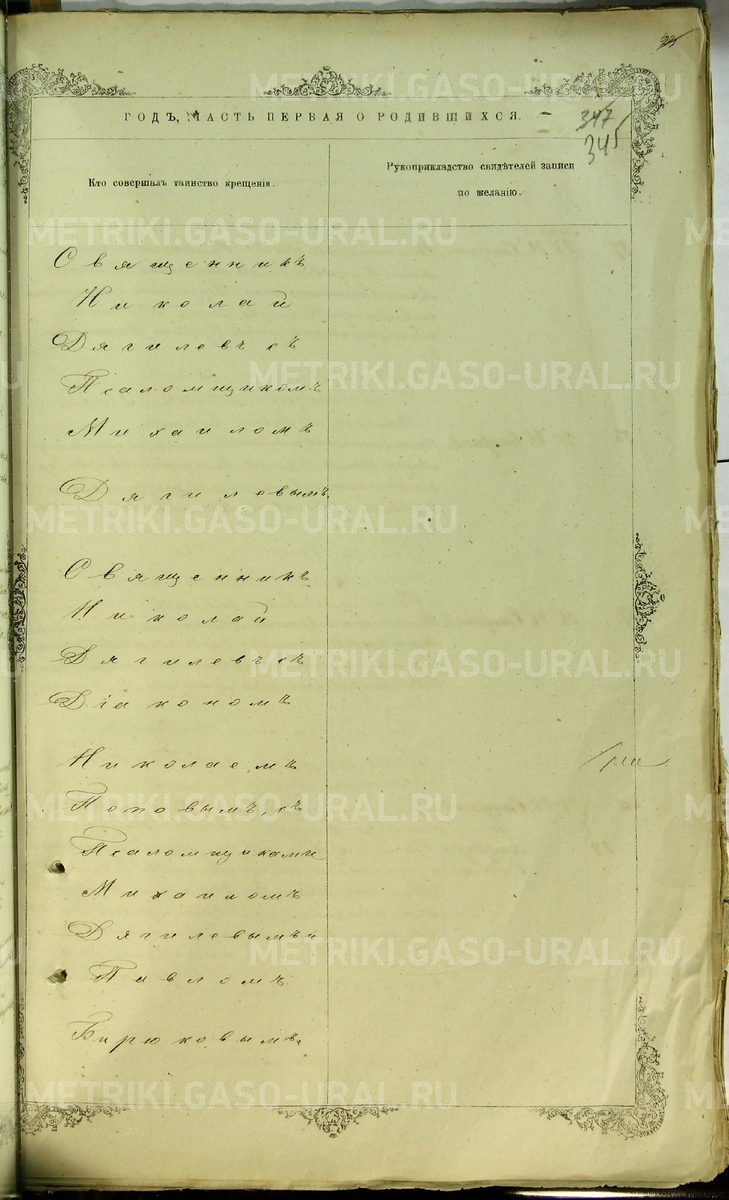 ГОДЪ, ЧАСТЬ ПЕРВАЯ О РОДИВШИХСЯ.
347
345
Кто совершалъ таинство крещенія.
Рукоприкладство свидѣтелей записи
по желанію.
Священникъ
Николай
Дягилевъ съ
Псаломщикомъ
Михаиломъ
Дягилевымъ.
Священникъ
Николай
Дягилевъ съ
Діакономъ
Николаемъ
Поповымъ, съ
Псаломщиками
Михаиломъ
Дягилевымъ и
Павломъ
Бирюковымъ.
METRIKI.GASO-URAL.RU